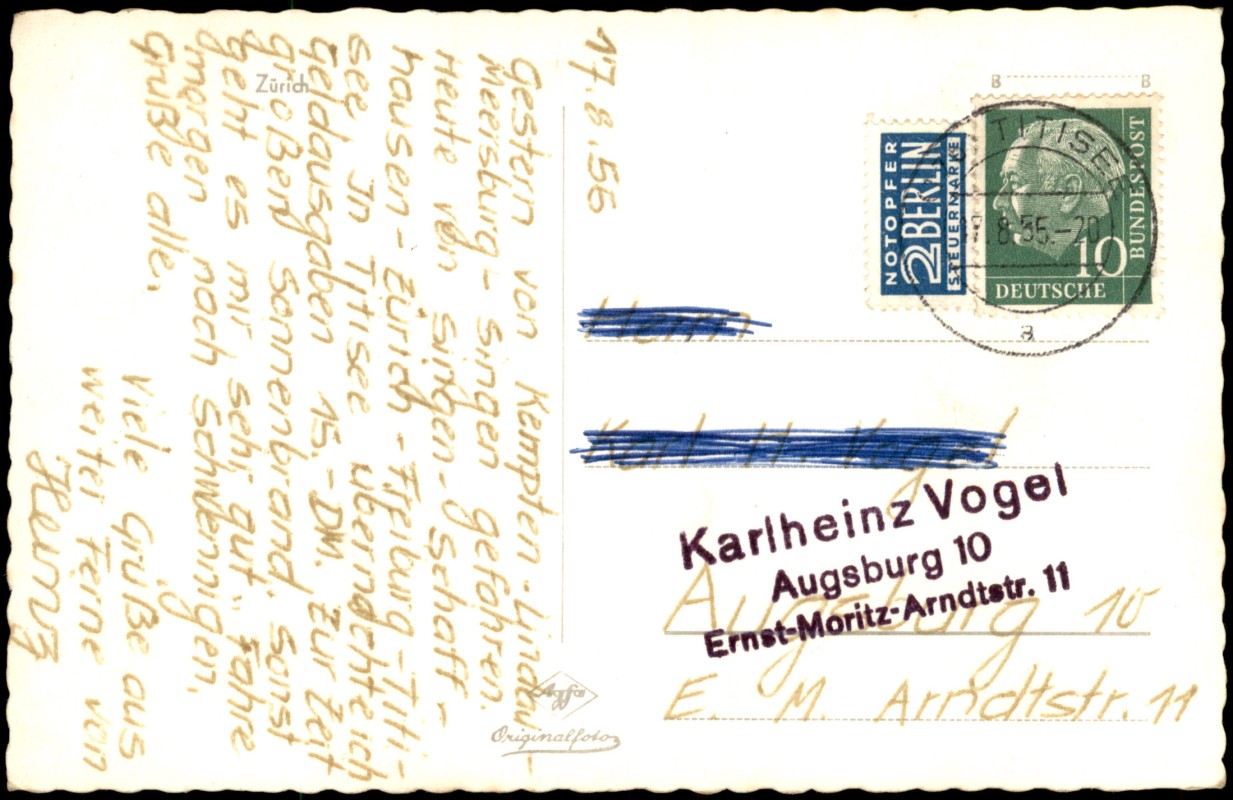 Zürich
17.8.56
Gestern von Kempten-Lindau-
Meersburg-Singen gefahren.
Heute von Singen-Schaff-
hausen-Zürich-Freiburg-Titi-
see. In Titisee übernachte ich
Geldausgaben 15.-DM. Zur Zeit
großen Sonnenbrand. Sonst
geht es mir sehr gut. Fahre
morgen nach Schwennigen.
Grüße alle.
Viele Grüße aus
weiter Ferne von
Heinz
Agfa
Originalfoto
B B
NOTOPFER
2 BERLIN
STEUERMARKE
10
DEUTSCHE
BUNDESPOST
TITISEE
.8.55-20
a
Herrn
Karl H. Vogel
Karlheinz Vogel
Augsburg 10
Ernst-Moritz-Arndtstr. 11
Augsburg 10
E. M. Arndtstr. 11